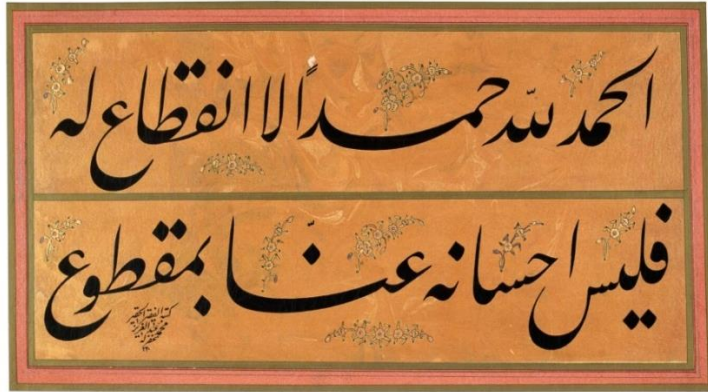 الحمد لله حمداً لا انقطاع له
فليس احسانه عنّا بمقطوع